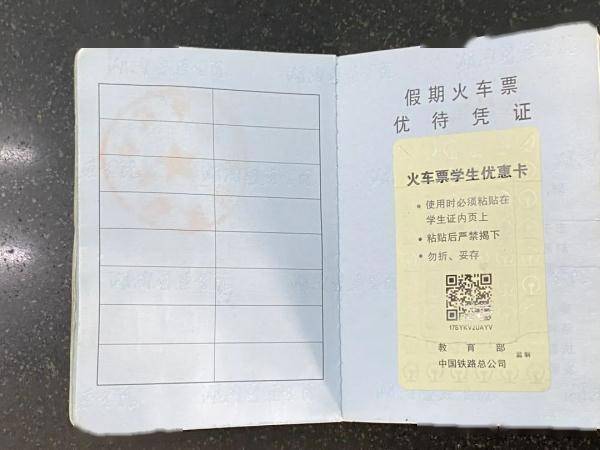 假期火车票
优待凭证
火车票学生优惠卡
• 使用时必须粘贴在
学生证内页上
• 粘贴后严禁揭下
• 勿折、妥存
176YKV2UAYV
教育部
中国铁路总公司 监制